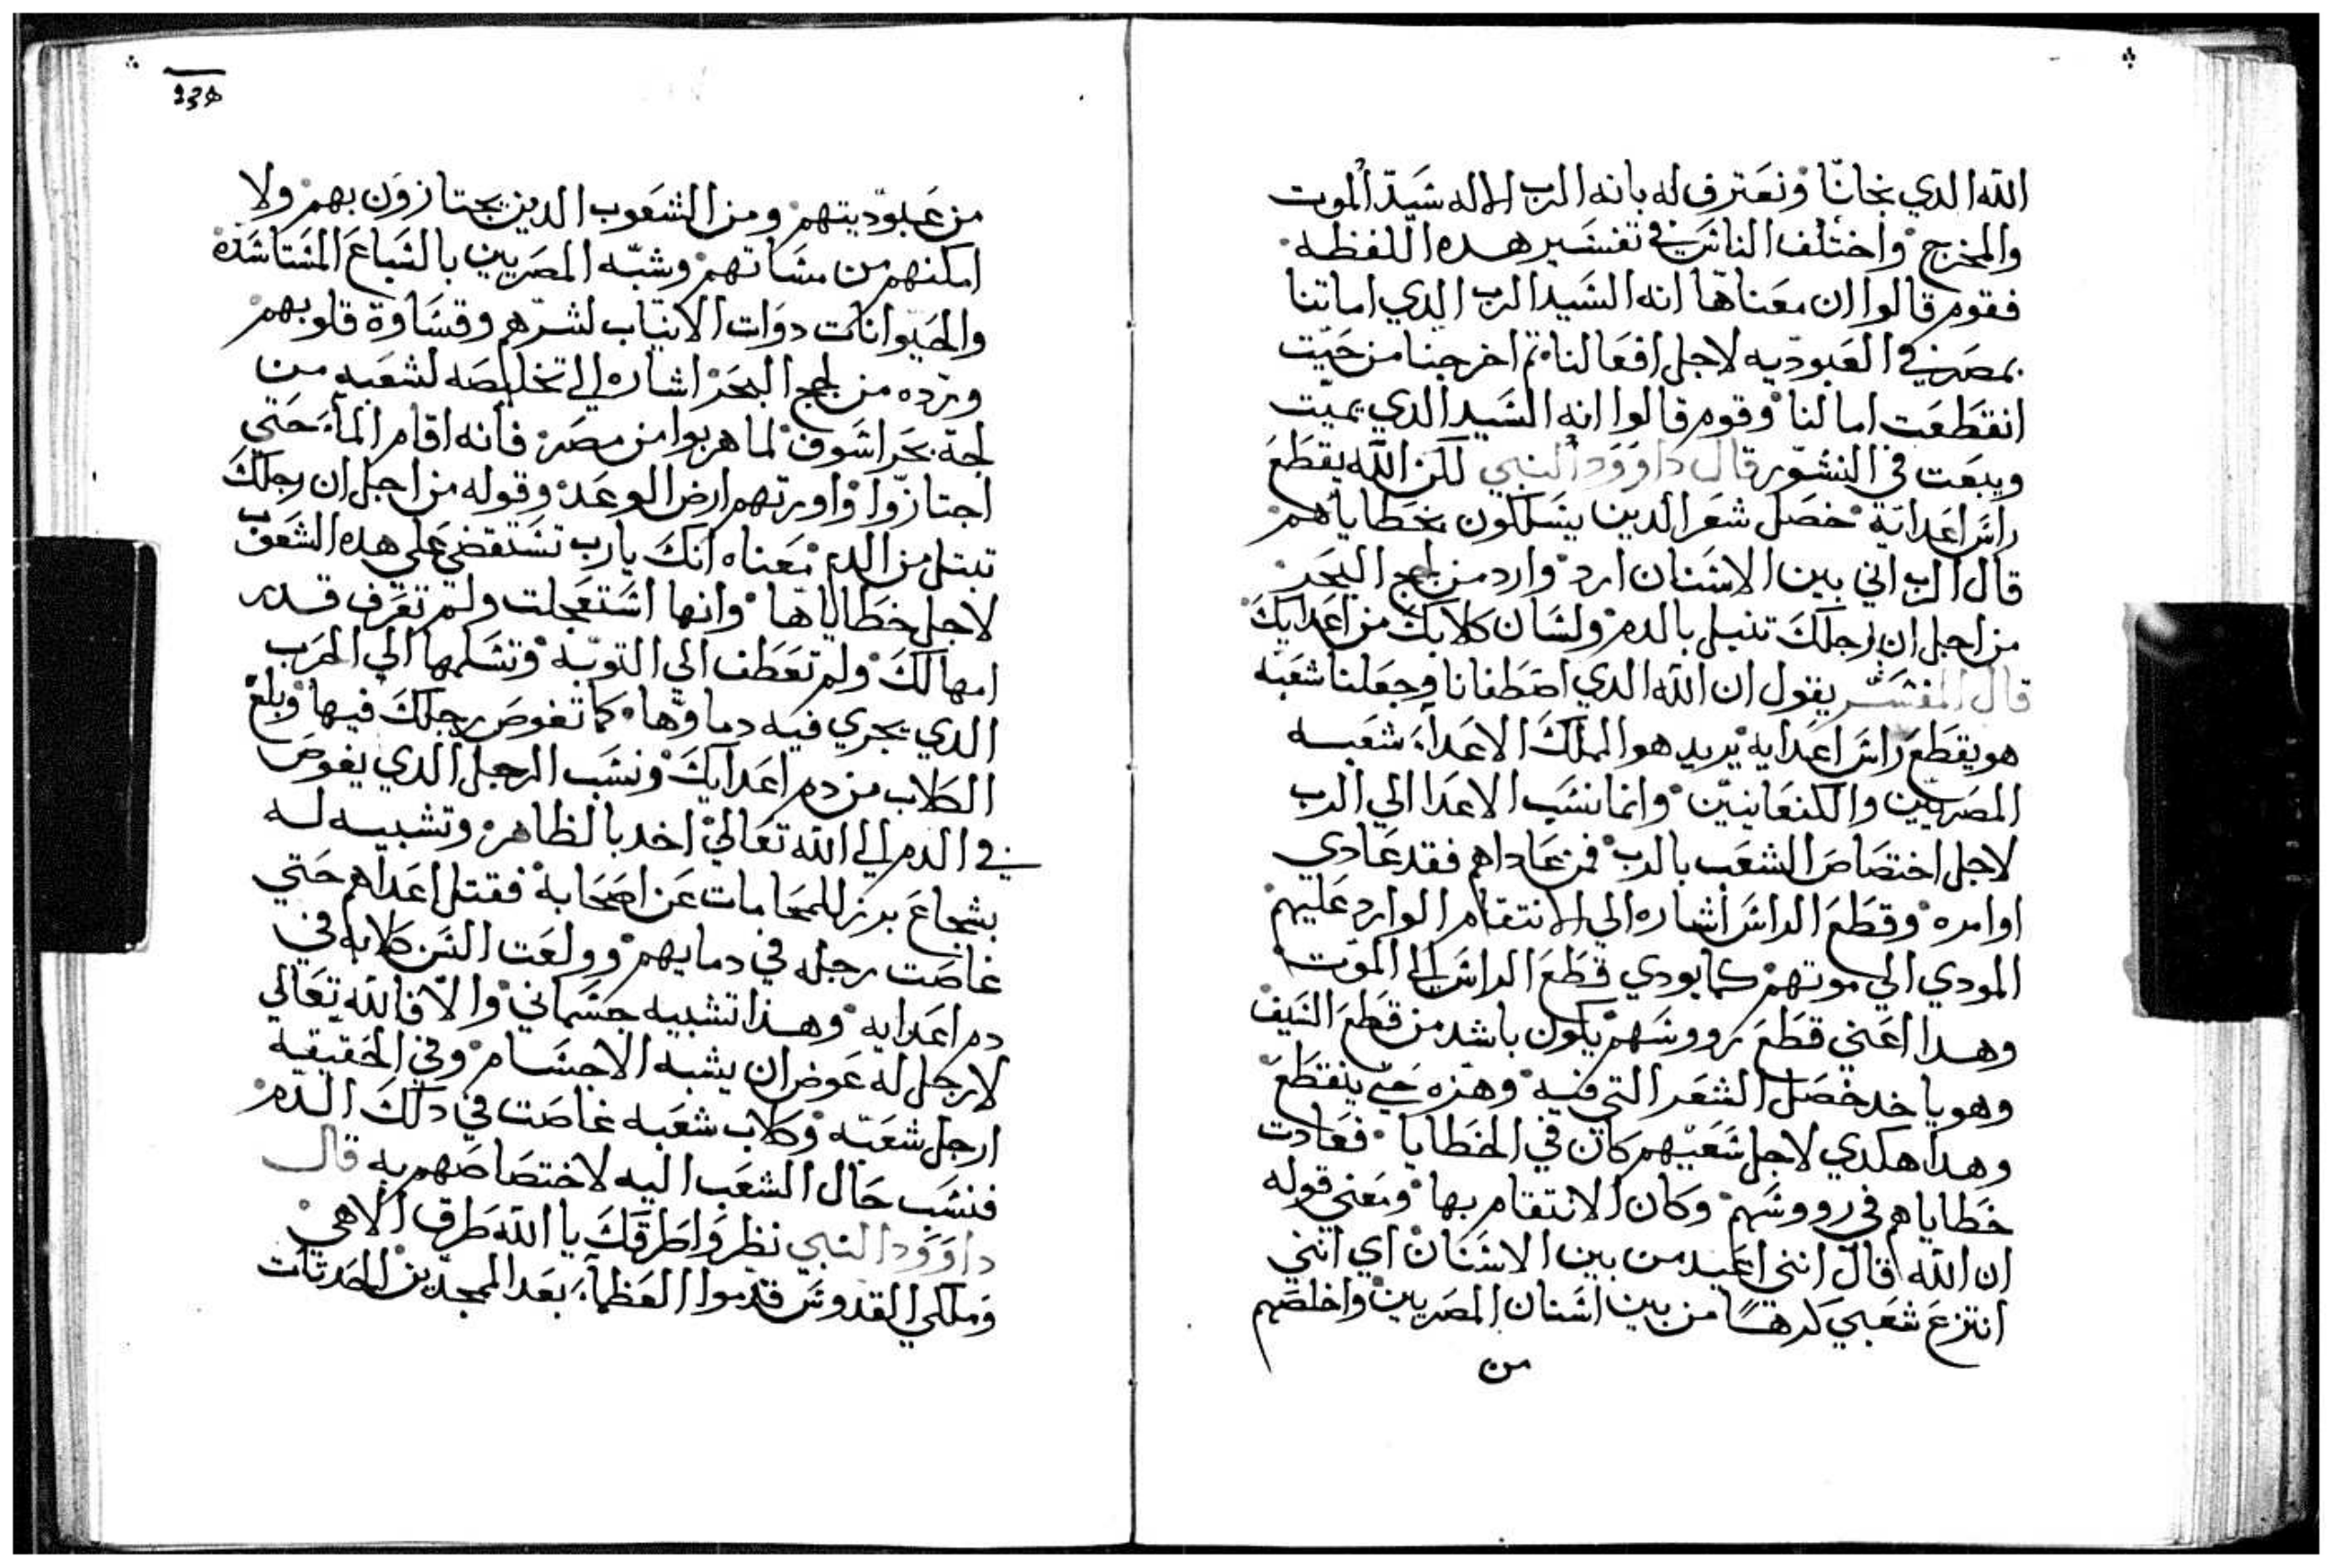 الله الدي نجانا ونعترف له بانه الرب الاله سيد الموت
والمخرج واختلف الناس في تفسير هده اللفظه
فقوم قالوا ان معناها انه السيد الرب الدي اماتنا
بمصر في العبوديه لاجل افعالنا تم اخرجنا من حيت
انقطعت امالنا وقوم قالوا انه السيد الدي يميت
ويبعت في النشور قال داوود النبي لكن الله يقطع
راس اعدايه خصل شعر الدين يسلكون بخطاياهم
قال الرب اني بين الاسنان ارد وارد من لجج البحر
من اجل ان رجلك تنبل بالدم ولسان كلابك من اعدايك
قال المفسر يقول ان الله الدي اصطفانا وجعلنا شعبه
هو يقطع راس اعدايه يريد هو الملك الاعدا شعبه
المصريين والكنعانيين وانما نسب الاعدا الي الرب
لاجل اختصاص الشعب بالرب فمن عاداهم فقد عادي
اوامره وقطع الراس اشاره الي الانتقام الوارد عليهم
المودي الي موتهم كما يودي قطع الراس الي الموت
وهدا اعني قطع رووسهم يكون باشد من قطع السيف
وهو ياخد خصل الشعر التي فيه وهزه حتي ينقطع
وهدا هكدي لاجل سعيهم كان في الخطايا فعادت
خطاياهم في رووسهم وكان الانتقام بها ومعني قوله
ان الله قال انني اعيد من بين الاسنان اي انني
انتزع شعبي كرهًا من بين اسنان المصريين واخلصهم
من
234
من عبوديتهم ومن الشعوب الدين يجتازون بهم ولا
امكنهم من مساتهم وشبه المصريين بالسباع المستاسده
والحيوانات دوات الانياب لشرهم وقساوة قلوبهم
ورده من لجج البحر اشاره الي تخليصه لشعبه من
لجة بحر اسوف لما هربوا من مصر فانه اقام الما حتي
اجتازوا واورتهم ارض الوعد وقوله من اجل ان رجلك
تبتل من الدم معناه انك يارب تستقضي علي هده الشعوب
لاجل خطاياها وانها استعجلت ولم تعرف قدر
امهالك ولم تعطف الي التوبة وتسلمها الي الحرب
الدي يجري فيه دماوها كما تغوص رجلك فيها وبلغ
الكلاب من دم اعدايك ونسب الرجل الدي يغوص
في الدم الي الله تعالي اخد بالظاهر وتشبيه له
بشجاع برز للمحامات عن اصحابه فقتل اعداهم حتي
غاصت رجله في دمايهم وولغت السن كلابه في
دم اعدايه وهدا تشبيه جسماني والا فالله تعالي
لا رجل له عوض ان يشبه الاجسام وفي الحقيقة
ارجل شعبه وكلاب شعبه غاصت في دلك الدم
فنسب حال الشعب اليه لاختصاصهم به قال
داوود النبي نظروا طرقك يا الله طرق الاهي
وملكي القدوس قدموا العظما بعد الممجدين الحدثات